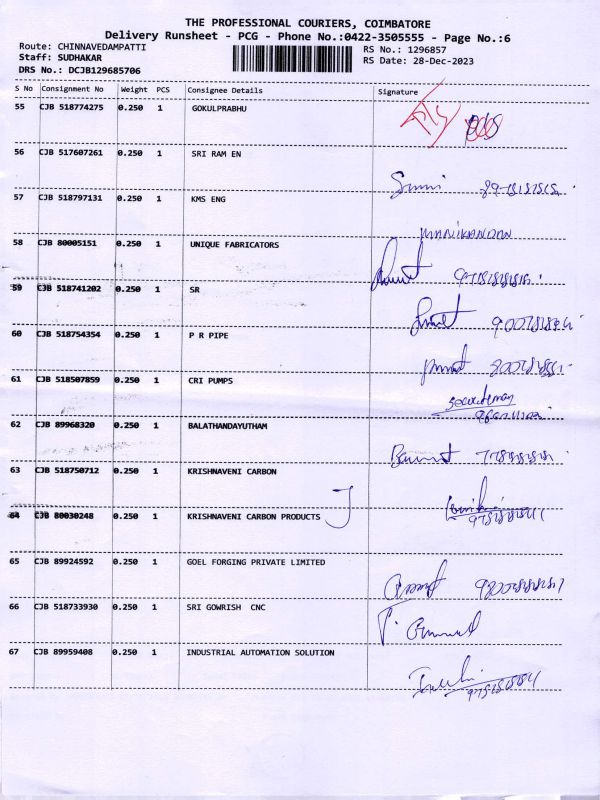 THE PROFESSIONAL COURIERS, COIMBATORE
Delivery Runsheet - PCG - Phone No.:0422-3505555 - Page No.:6
Route: CHINNAVEDAMPATTI RS No.: 1296857
Staff: SUDHAKAR RS Date: 28-Dec-2023
DRS No.: DCJB129685706
S No Consignment No Weight PCS Consignee Details Signature
55 CJB 518774275 0.250 1 GOKULPRABHU
56 CJB 517607261 0.250 1 SRI RAM EN
57 CJB 518797131 0.250 1 KMS ENG
MANIKANDAN
58 CJB 80005151 0.250 1 UNIQUE FABRICATORS
59 CJB 518741202 0.250 1 SR
60 CJB 518754354 0.250 1 P R PIPE
61 CJB 518507859 0.250 1 CRI PUMPS
62 CJB 89968320 0.250 1 BALATHANDAYUTHAM
63 CJB 518750712 0.250 1 KRISHNAVENI CARBON
64 CJB 80030248 0.250 1 KRISHNAVENI CARBON PRODUCTS
65 CJB 89924592 0.250 1 GOEL FORGING PRIVATE LIMITED
66 CJB 518733930 0.250 1 SRI GOWRISH CNC
67 CJB 89959408 0.250 1 INDUSTRIAL AUTOMATION SOLUTION